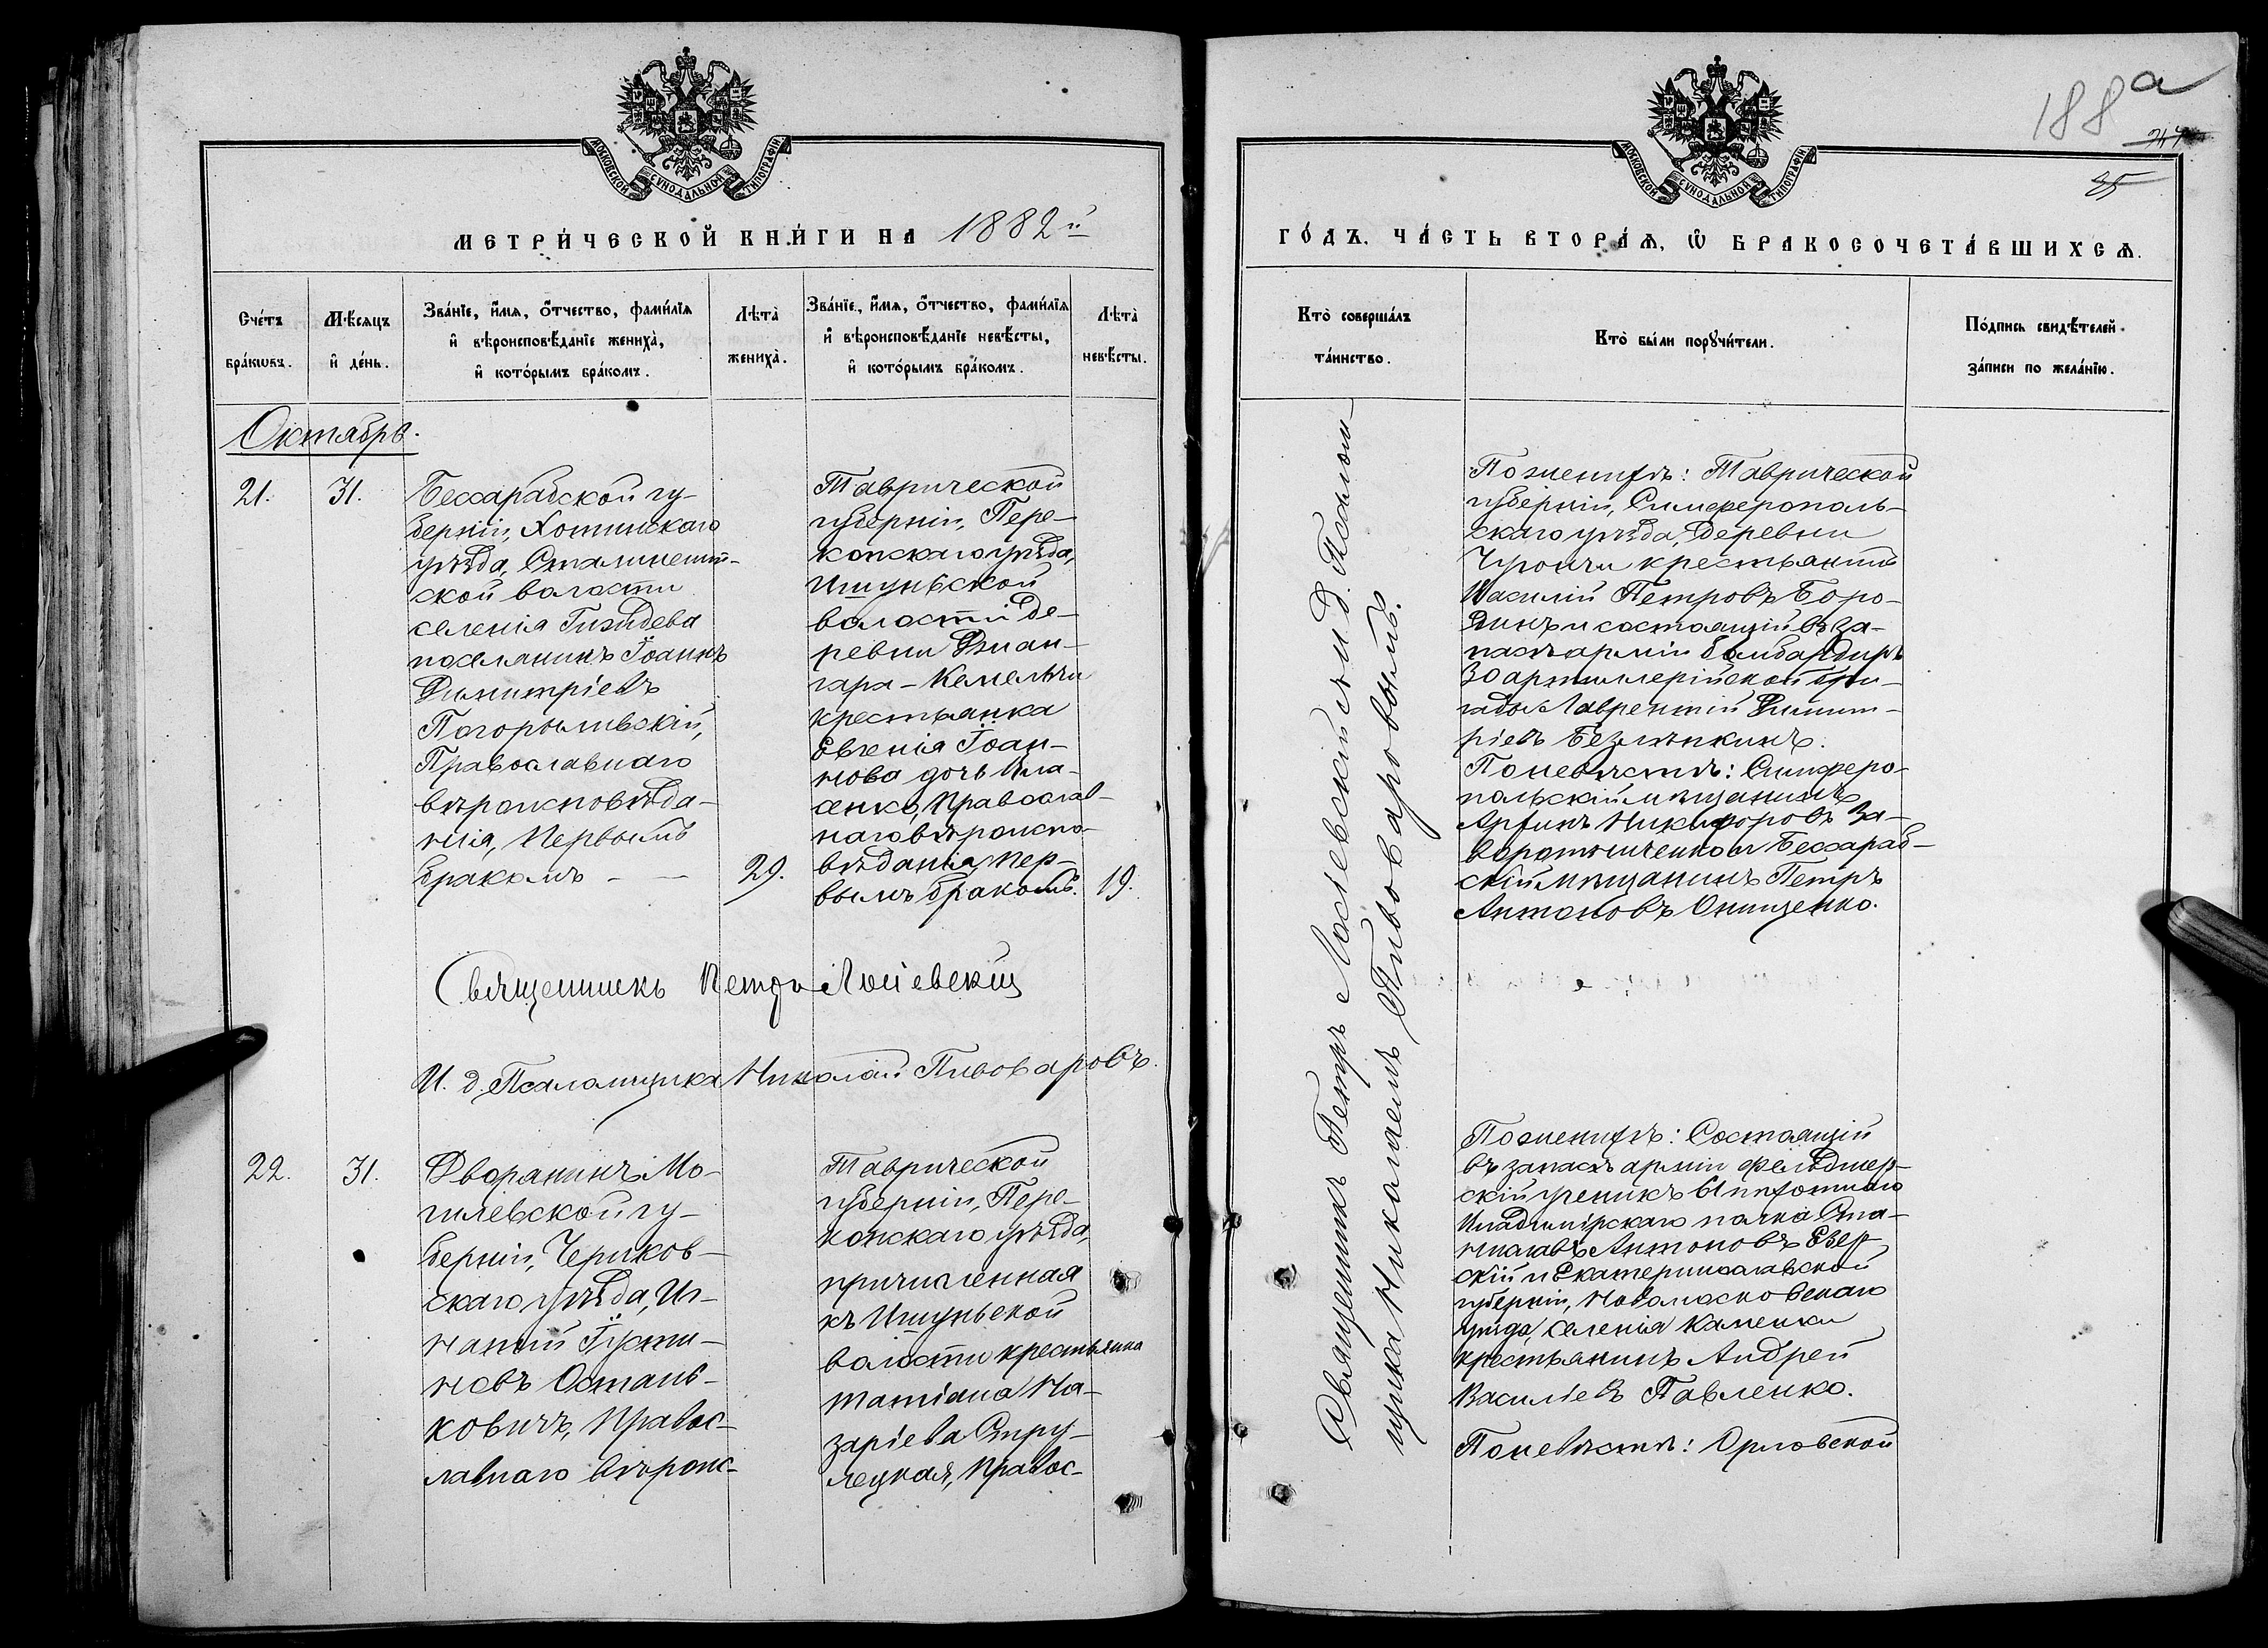 МОСКОВСКОЙ СУНОДАЛЬНОЙ ТИПОГРАФІИ
МЕТРИ́ЧЕСКОЙ КНИ́ГИ НА 1882й
Сче́тъ бра́кѡвъ.
Мѣ́сяцъ и҆ де́нь.
Зва́нїе, и҆́мѧ, ѻ҆́тчество, фами́лїѧ
и҆ вѣроисповѣ́данїе жениха̀,
и҆ кото́рымъ бра́комъ.
Лѣта̀ жениха̀.
Зва́нїе, и҆́мѧ, ѻ҆́тчество, фами́лїѧ
и҆ вѣроисповѣ́данїе невѣ́сты,
и҆ кото́рымъ бра́комъ.
Лѣта̀ невѣ́сты.
Октябрь.
21.
31.
Бессарабской гу-
берніи, Хотинскаго
уѣзда, Сталинешт-
ской волости
селенія Гиждева
поселянинъ Іоаннъ
Димитріевъ
Погорыливскій,
Православнаго
вѣроисповѣда-
нія, Первымъ
бракомъ - —
29.
Таврической
губерніи, Пере-
копскаго уѣзда,
Ишуньской
волости де-
ревни Джан-
гара-Кемельчи
крестьянка
Евгенія Іоан-
нова дочь Вла-
сенко, Православ-
наго вѣроиспо-
вѣданія, пер-
вымъ бракомъ.
19.
Священникъ Петръ Лосіевскій
И. д. Псаломщика Николай Пивоваровъ.
22.
31.
Дворянинъ Мо-
гилевской гу-
берніи, Чериков-
скаго уѣзда, Иг-
натій Іусти-
новъ Остань-
ковичъ, Правос-
лавнаго вѣроис-
Таврической
губерніи, Пере-
копскаго уѣзда,
причисленная
къ Ишуньской
волости крестьянка
Татіана На-
заріева Стру-
лецкая, Правос-
188а
25
МОСКОВСКОЙ СУНОДАЛЬНОЙ ТИПОГРАФІИ
ГО́ДЪ. ЧА́СТЬ ВТОРА́Ѧ, Ѡ҆ БРАКОСОЧЕТА́ВШИХСѦ.
Кто̀ соверша́лъ
та́инство.
Кто̀ бы́ли порꙋчи́тели.
По́дпись свидѣ́телей
за́писи по жела́нїю.
Священникъ Петръ Лосіевскій съ и. д. Псалом-
щика Николаемъ Пивоваровымъ.
По женихѣ: Таврической
губерніи, Симферополь-
скаго уѣзда, деревни
Чроичи крестьянинъ
Василій Петровъ Боро-
динъ и состоящій въ за-
пасѣ арміи бомбардиръ
30 артиллерійской бри-
гады Лаврентій Димит-
ріевъ Безляпкинъ.
По невѣстѣ: Симферо-
польскій мѣщанинъ
Никифоровъ За-
воротынченко и Бессараб-
скій мѣщанинъ Петръ
Антоновъ Онищенко.
По женихѣ: Состоящій
въ запасѣ арміи фельдшер-
скій ученикъ 61 пѣхотнаго
Владимірскаго полка Ста-
ниславъ Антоновъ Езер-
скій и Екатеринославской
губерніи, Новомосковскаго
уѣзда, селенія Каменки
крестьянинъ Андрей
Василіевъ Павленко.
По невѣстѣ: Орловской